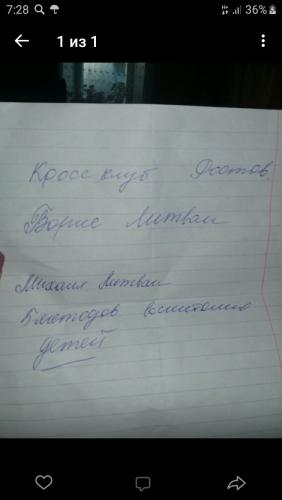 7:28 36%
1 из 1
Кросс клуб Ростов.
Борис Литвак
Михаил Литвак
5 методов воспитания
детей